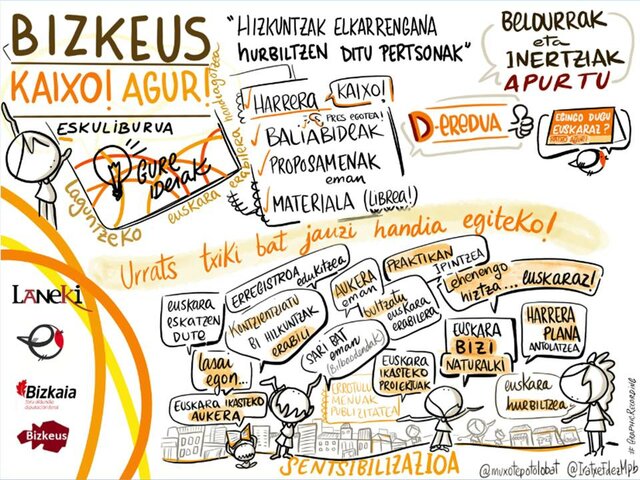 BIZKEUS
KAIXO! AGUR!
ESKULIBURUA
GURE
DEIAK
laguntzeko
euskara erabilera handiagotzea
"HIZKUNTZAK ELKARRENGANA
HURBILTZEN DITU PERTSONAK"
HARRERA KAIXO!
PRES EGOTEA!
BALIABIDEAK
PROPOSAMENAK
eman
MATERIALA (LIBREA!)
D-EREDUA
BELDURRAK
eta
INERTZIAK
APURTU
EGINGO DUGU
EUSKARAZ?
Urrats txiki bat jauzi handia egiteko!
euskara
ESKATZEN
DUTE
ERREGISTROA
EDUKITZEA
KONTZIENTZIATU
BI HIZKUNTZAK
ERABILI
lasai
egon...
EUSKARA IKASTEKO
AUKERA
AUKERA
EMAN
SARI BAT
eman
(Bilboodendak)
ERROTULU
MENUAK
PUBLIZITATEA
bultzatu
euskara
erabilera
PRAKTIKAN
IPINTZEA
EUSKARA
IKASTEKO
PROIEKTUAK
lehenengo
hiztza... euskaraz!
EUSKARA
BIZI
NATURALKI
HARRERA
PLANA
ANTOLATZEA
euskara
HURBILTZEA
SENTSIBILIZAZIOA
LANEKI
Bizkaia
foru aldundia
diputación foral
Bizkeus
# GRAPHIC RECORDING
@muxotepotolobat @IratxetdezMpb